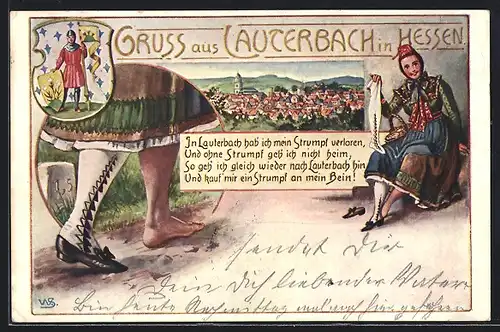 GRUSS aus LAUTERBACH in HESSEN
In Lauterbach hab ich mein Strumpf verloren,
Und ohne Strumpf geh ich nicht heim,
So geh ich gleich wieder nach Lauterbach hin
Und kauf mir ein Strumpf an mein Bein!
sendet Dir
Dein Dich liebender Vater
Bin heute Nachmittag